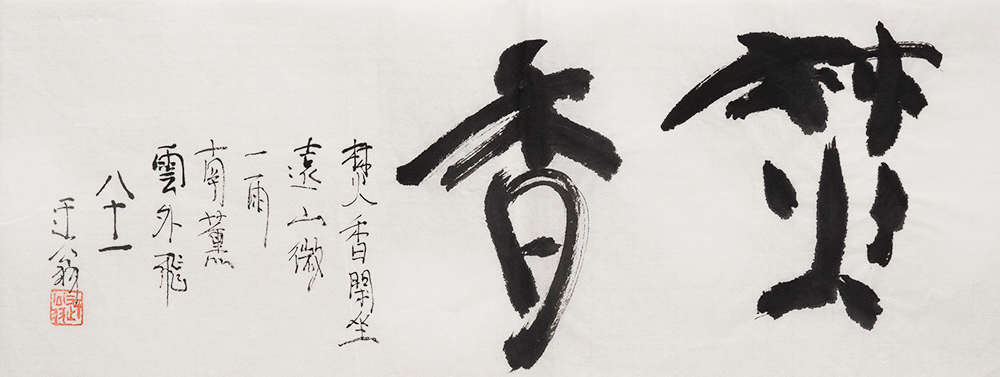 焚
香
焚香閑坐
遠山微
一雨
南薰
雲外飛
八十一
迂翁